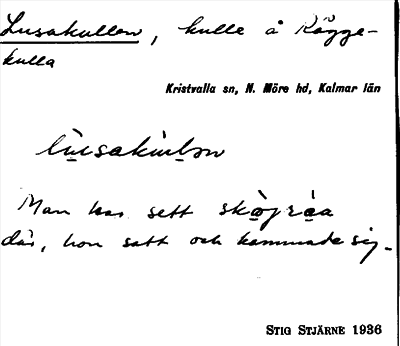 Lusakullen, kulle å Rågge-
kulla
Kristvalla sn, N. Möre hd, Kalmar län
lùsakùlən
Man har sett skògråa
där, hon satt och kammade sig.
STIG STJÄRNE 1936